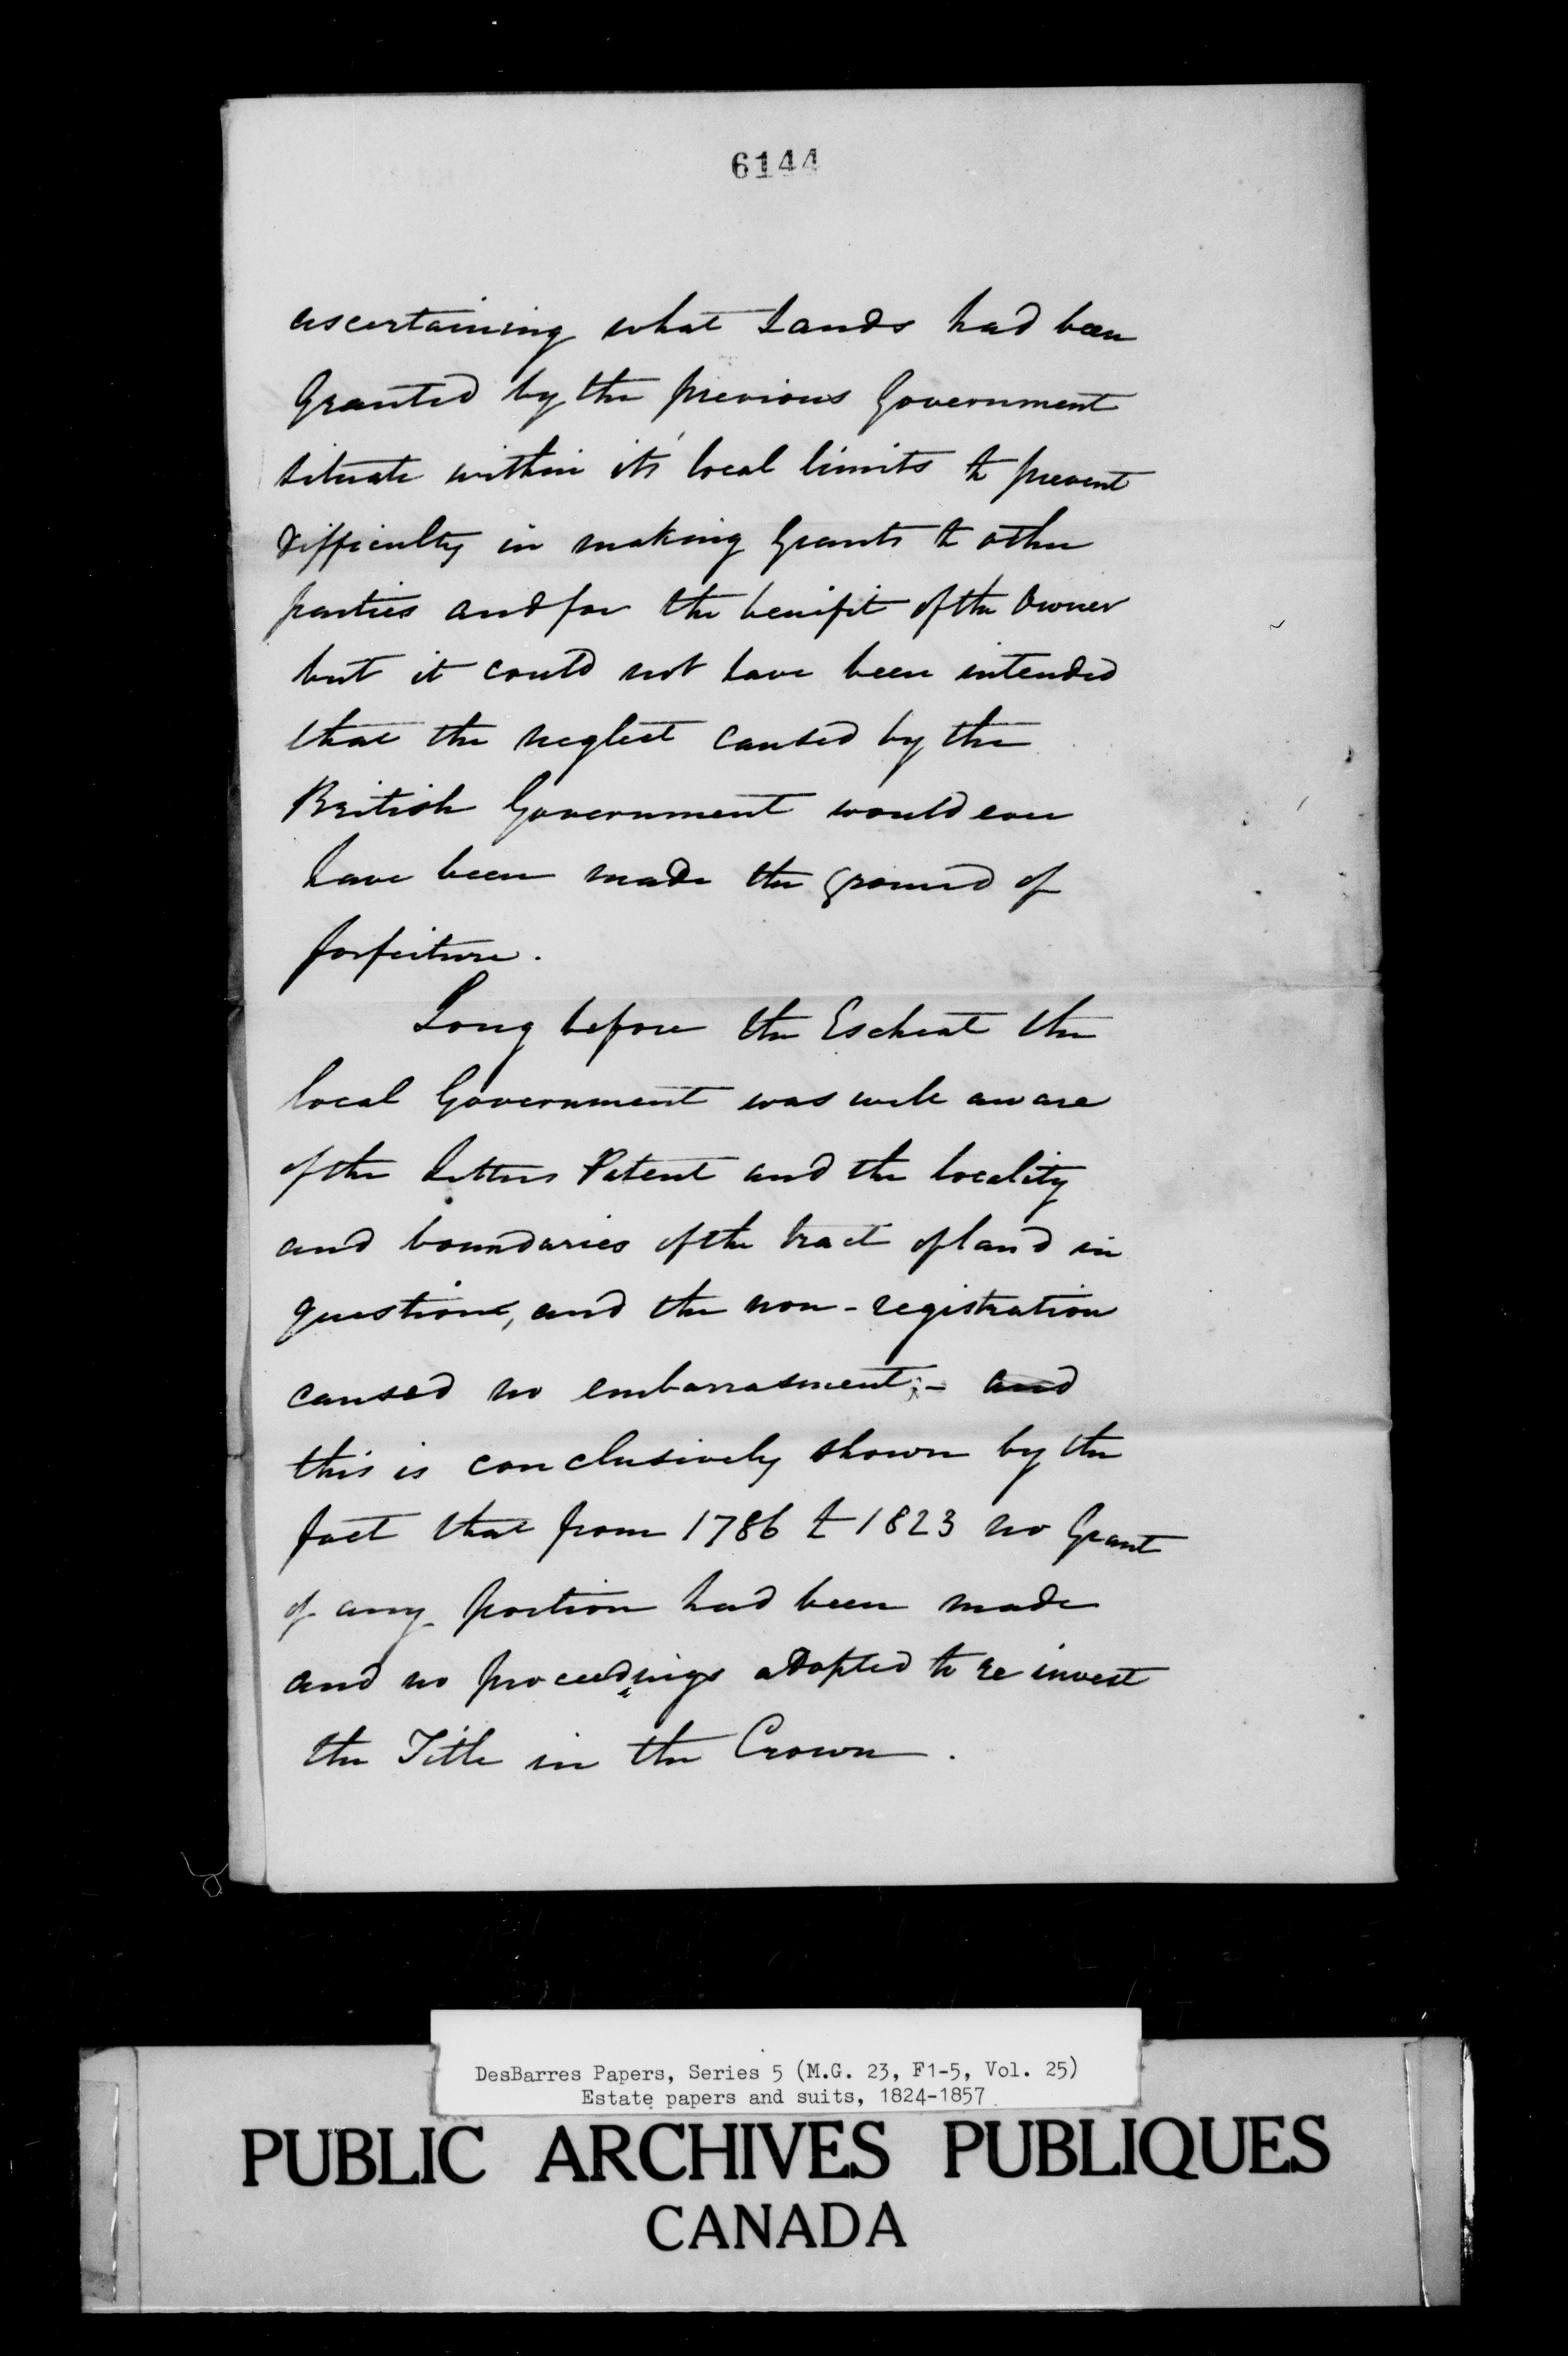 6144
ascertaining what Lands had been
Granted by the previous Government
situate within it's local limits to prevent
difficulty in making Grants to other
parties and for the benifit of the Owner
but it could not have been intended
that the neglect caused by the
British Government would ever
have been made the ground of
forfeiture.
Long before the Escheat the
local Government was well aware
of the Letters Patent and the locality
and boundaries of the tract of land in
question, and the non-registration
caused no embarrasment;- and
this is conclusively shown by the
fact that from 1786 to 1823 no Grant
of any portion had been made
and no proceedings adopted to re invest
the Title in the Crown.
DesBarres Papers, Series 5 (M.G. 23, F1-5, Vol. 25)
Estate papers and suits, 1824-1857
PUBLIC ARCHIVES PUBLIQUES
CANADA